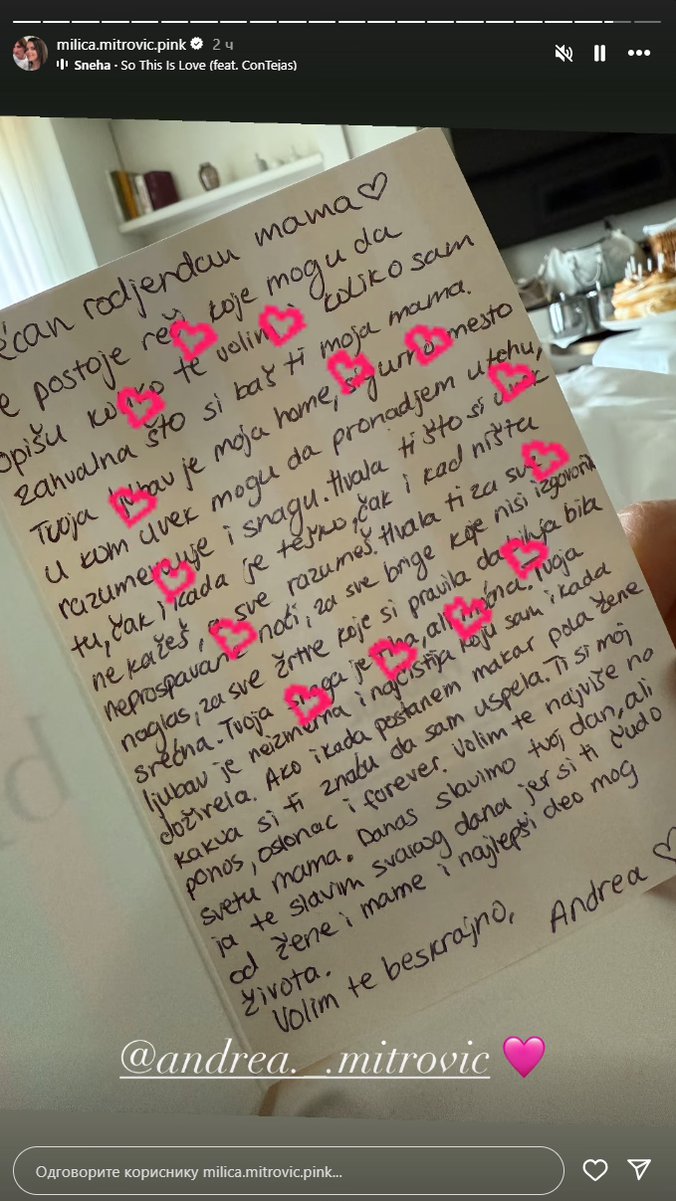 milica.mitrovic.pink 2 ч
Sneha · So This Is Love (feat. ConTejas)
ećan rodjendan mama♡
e postoje reči koje mogu da
opišu koliko te volim i koliko sam
zahvalna što si baš ti moja mama.
Tvoja ljubav je moja home, sigurno mesto
u kom uvek mogu da pronadjem utehu,
razumevanje i snagu. Hvala ti što si uvek
tu, čak i kada je teško, čak i kad ništa
ne kažeš, a sve razumeš. Hvala ti za sve
neprospavane noći, za sve brige koje nisi izgovorila
naglas, za sve žrtve koje si pravila da bih ja bila
srećna. Tvoja snaga je tiha, ali moćna. Tvoja
ljubav je neizmerna i najčistija koju sam ikada
doživela. Ako ikada postanem makar pola žene
kakva si ti znaću da sam uspela. Ti si moj
ponos, oslonac i forever. Volim te najviše na
svetu mama. Danas slavimo tvoj dan, ali
ja te slavim svakog dana jer si ti čudo
od žene i mame i najlepši deo mog
života.
Volim te beskrajno, Andrea ♡
@andrea._.mitrovic
Одговорите кориснику milica.mitrovic.pink...